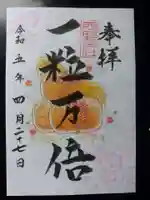 奉拝
一粒万倍
令和五年四月二十七日